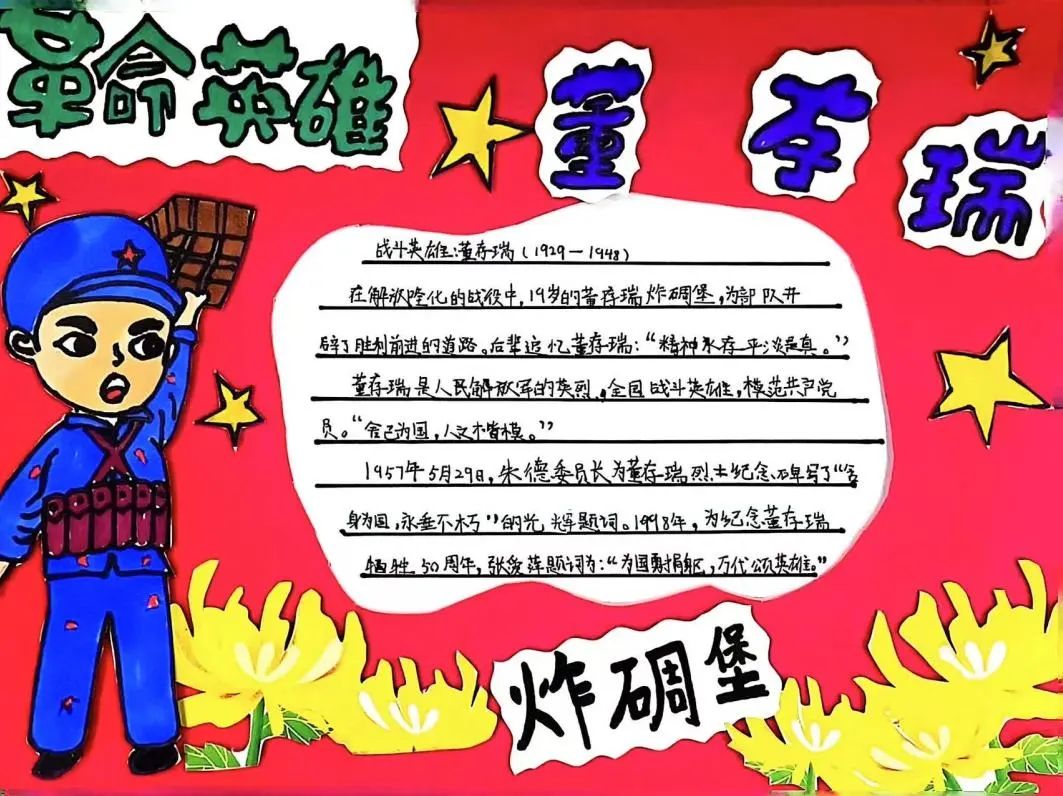 革命英雄
董存瑞
战斗英雄:董存瑞(1929—1948)
在解放隆化的战役中,19岁的董存瑞炸碉堡,为部队开
辟了胜利前进的道路。后辈追忆董存瑞:“精神永存平淡是真。”
董存瑞是人民解放军的英烈,全国战斗英雄,模范共产党
员。“舍己为国,人之楷模。”
1957年5月29日,朱德委员长为董存瑞烈士纪念碑写了“舍
身为国,永垂不朽”的光辉题词。1998年,为纪念董存瑞
牺牲50周年,张爱萍题词为:“为国勇捐躯,万代颂英雄。”
炸碉堡